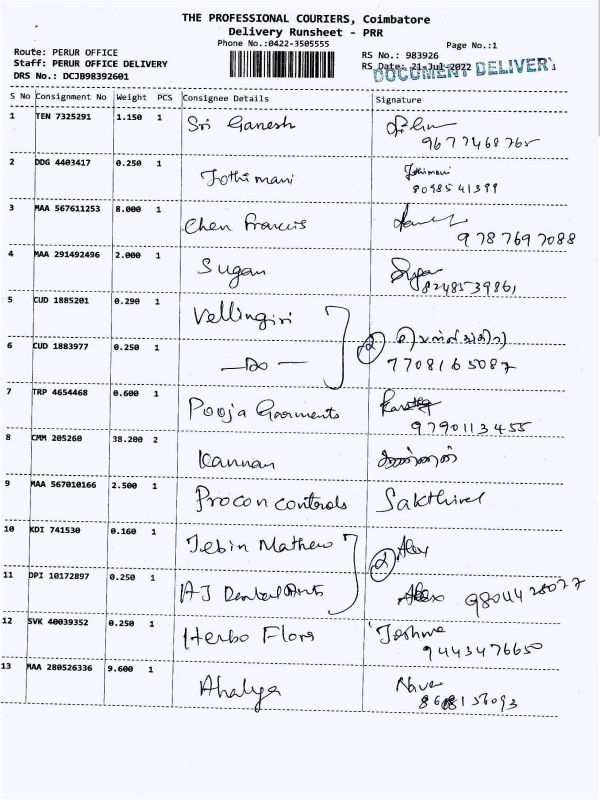 THE PROFESSIONAL COURIERS, Coimbatore
Delivery Runsheet - PRR
Phone No.:0422-3505555
Page No.:1
Route: PERUR OFFICE
RS No.: 983926
Staff: PERUR OFFICE DELIVERY
RS Date: 21-Jul-2022
DOCUMENT DELIVERY
DRS No.: DCJB98392601
S No Consignment No Weight PCS Consignee Details Signature
1 TEN 7325291 1.150 1 Sri Ganesh
9677468765
2 DDG 4403417 0.250 1 Jothimani Jothimani
8098541399
3 MAA 567611253 8.000 1 Chen Francis
9787697088
4 MAA 291492496 2.000 1 Sugan Sugan
8248539861
5 CUD 1885201 0.290 1 Vellingiri
6 CUD 1883977 0.250 1 —Do— 2
7708165087
7 TRP 4654468 0.600 1 Pooja Garments
9790113455
8 CMM 205260 38.200 2 Kannan
9 MAA 567010166 2.500 1 Procon controls Sakthivel
10 KDI 741530 0.160 1 Jebin Mathew 2 Alex
11 DPI 10172897 0.250 1 AJ Dental Arts Alex
12 SVK 40039352 0.250 1 Herbo Flora
9443476650
13 MAA 280526336 9.600 1 Ahalya